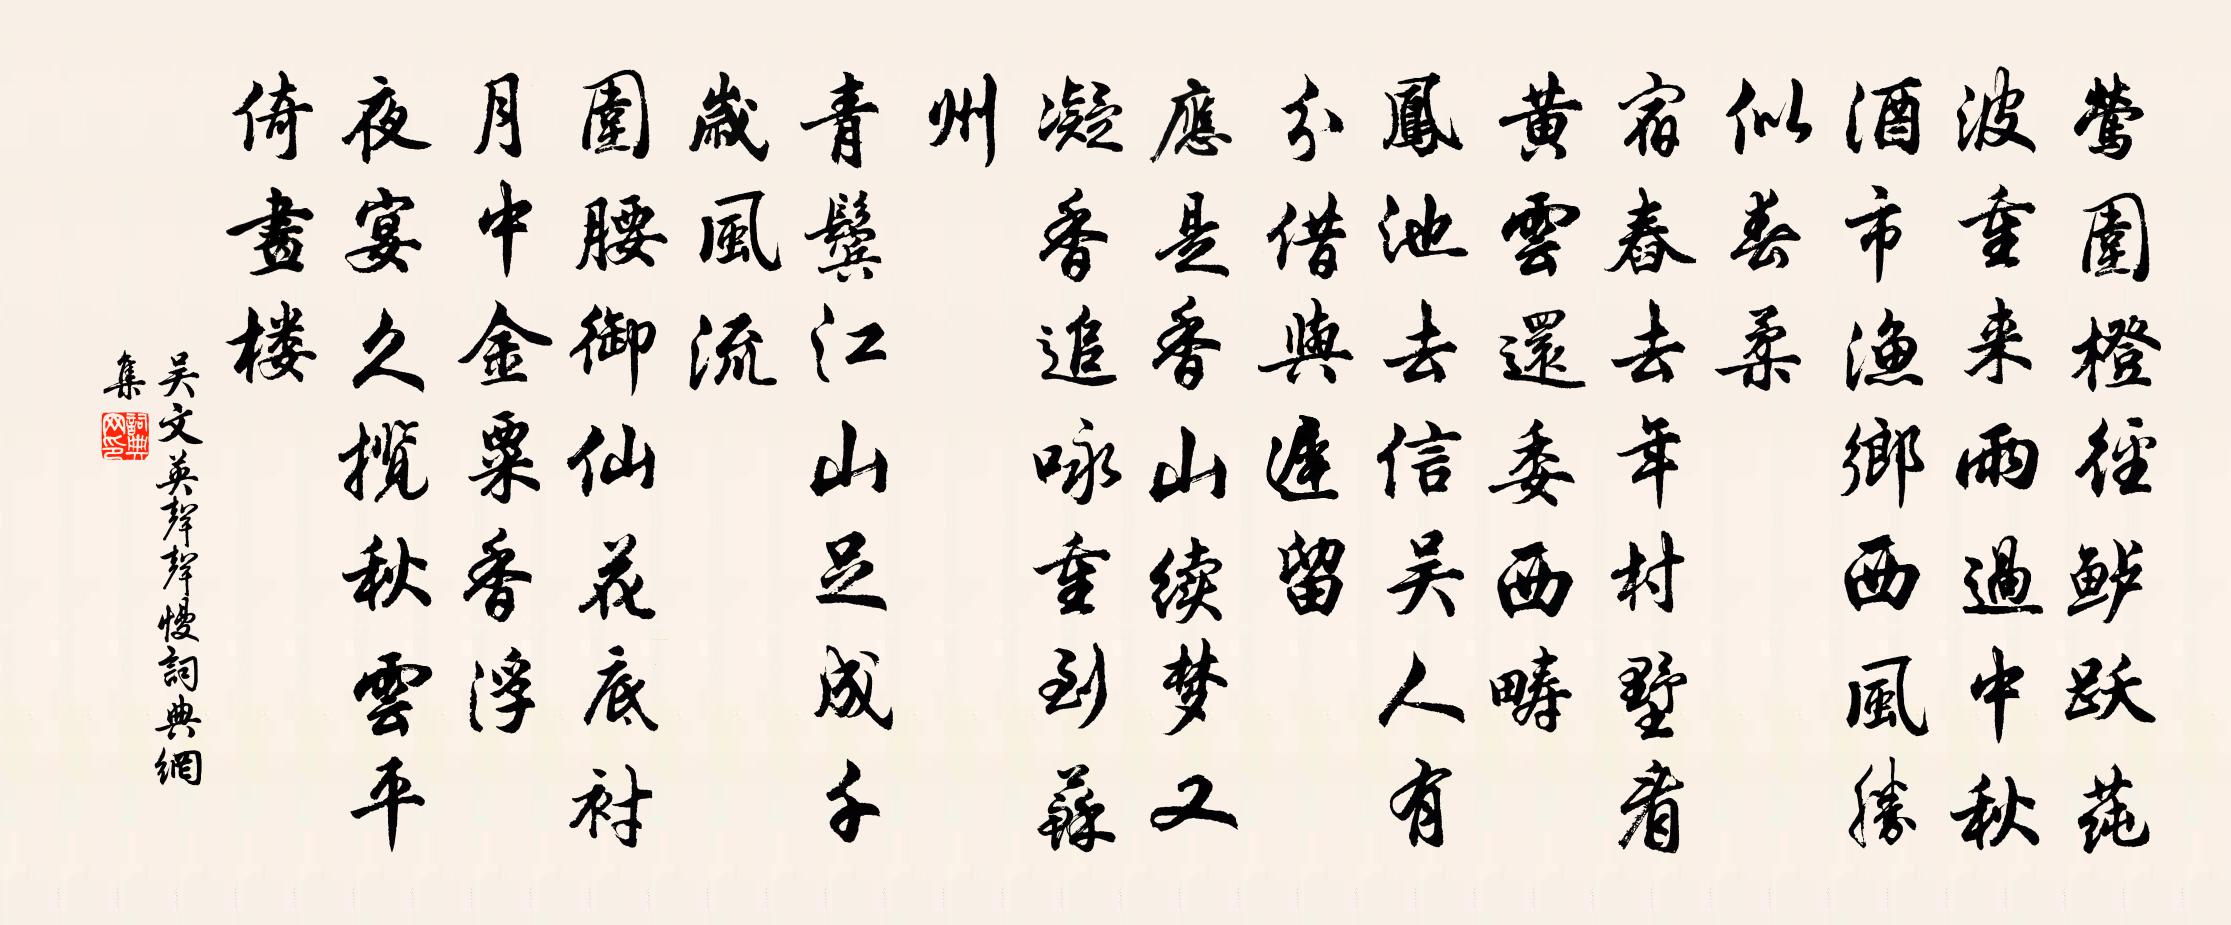 鶯圍橙徑鲈跃莼
波重来兩過中秋
酒市漁鄉西風勝
似春柔
宿舂去年村墅看
黄雲還委西疇
鳳池去信吴人有
分借與遲留
應是香山续梦又
凝香追咏重到蘇
州
青鬢江山足成千
歲風流
圍腰御仙花底衬
月中金粟香浮
夜宴久揽秋雲平
倚畫楼
吴文英聲聲慢詞典網
集
詞典网印